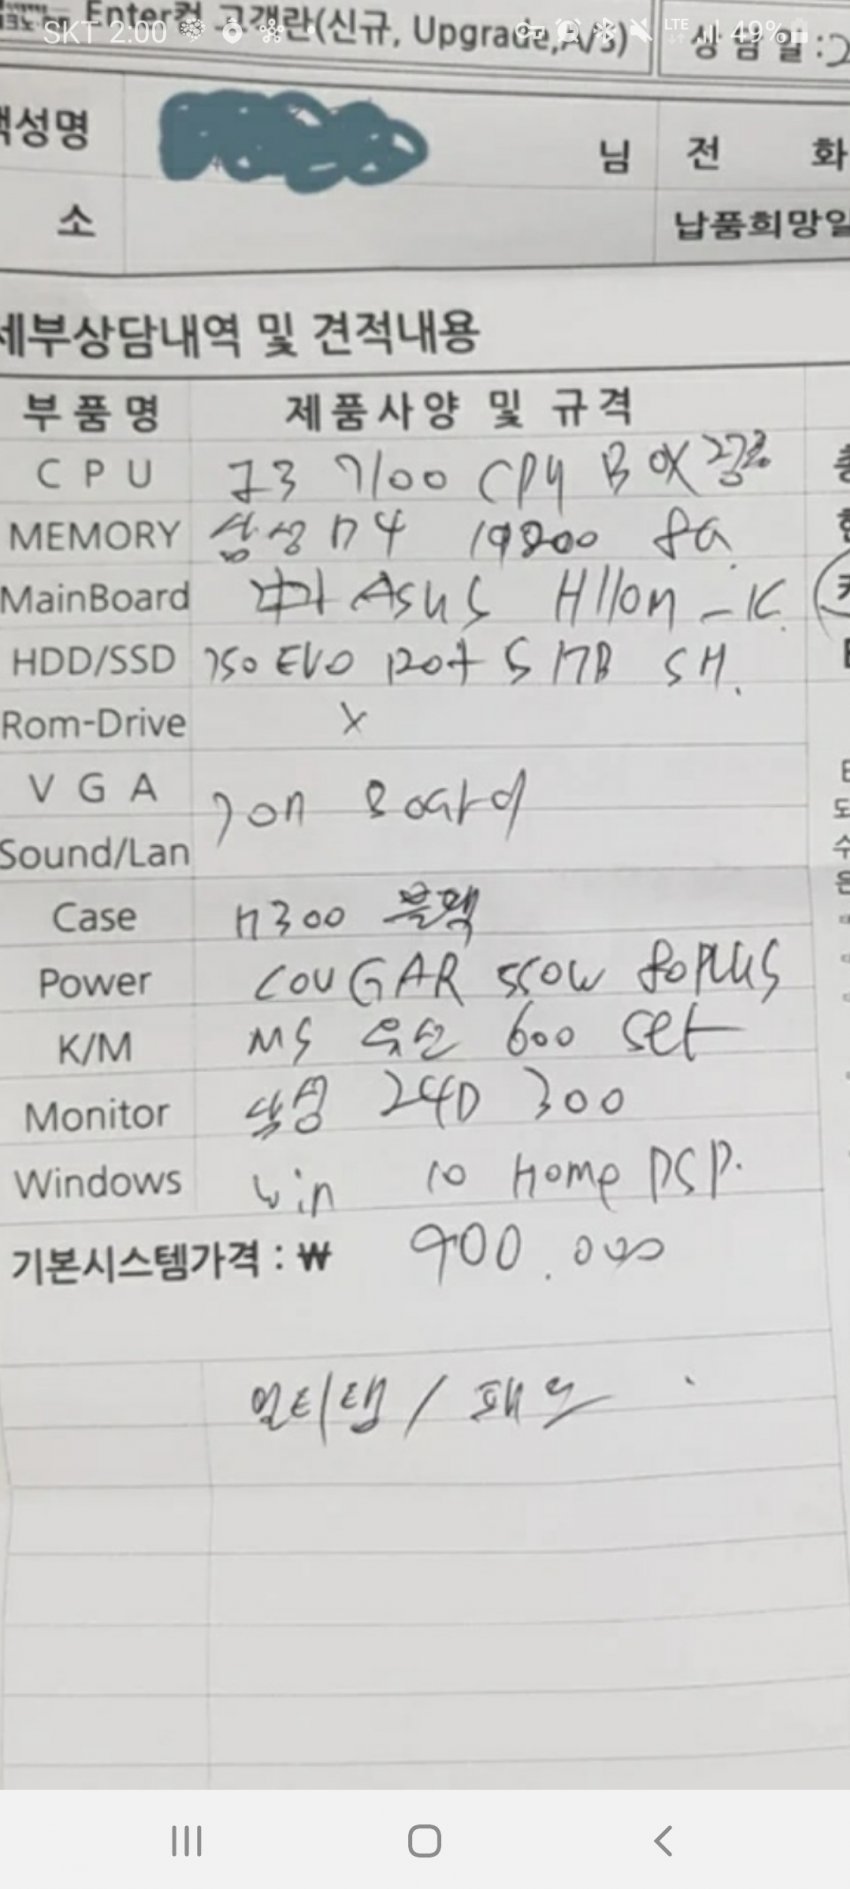 SKT 2:00 LTE 49%
Enter컴 고객란(신규, Upgrade,A/S) 상담일:2
객성명 님 전 화
소 납품희망일
세부상담내역 및 견적내용
부품명 제품사양 및 규격
CPU I3 7100 CPU BOX 정품
MEMORY 삼성 D4 19200 8G
MainBoard ASUS H110M-K
HDD/SSD 750 EVO 120+5 MB SH.
Rom-Drive X
VGA on Board
Sound/Lan
Case M300 블랙
Power COUGAR 550W 80PLUS
K/M MS 유선 600 Set
Monitor 삼성 24D 300
Windows Win 10 Home DSP.
기본시스템가격 : ₩ 900.000
멀티탭 / 패드